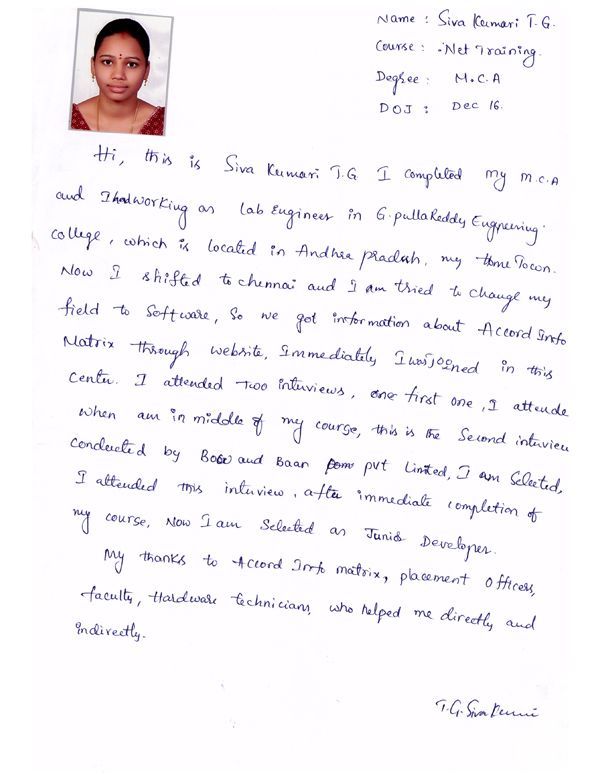 Name : Siva Kumari T.G.
Course : .Net Training.
Degree : M.C.A
DOJ : Dec 16.
Hi, this is Siva Kumari T.G I completed my M.C.A
and I had working as Lab Engineer in G.pulla Reddy Engneering.
college, which is located in Andhra pradesh, my Home Town.
Now I shifted to chennai and I am tried to change my
field to Software, So we got information about Accord Info
Matrix through website, Immediately I was joined in this
center. I attended Two interviews, one first one, I attende
when am in middle of my course, this is the Second interview
conducted by and Baan pvt Limited, I am Selected,
I attended this interview, after immediate completion of
my course, Now I am Selected as Junior Developer.
My thanks to Accord Info matrix, placement Officers,
faculty, Hardware Technicians, who helped me directly and
indirectly.
T.G.Siva Kumari